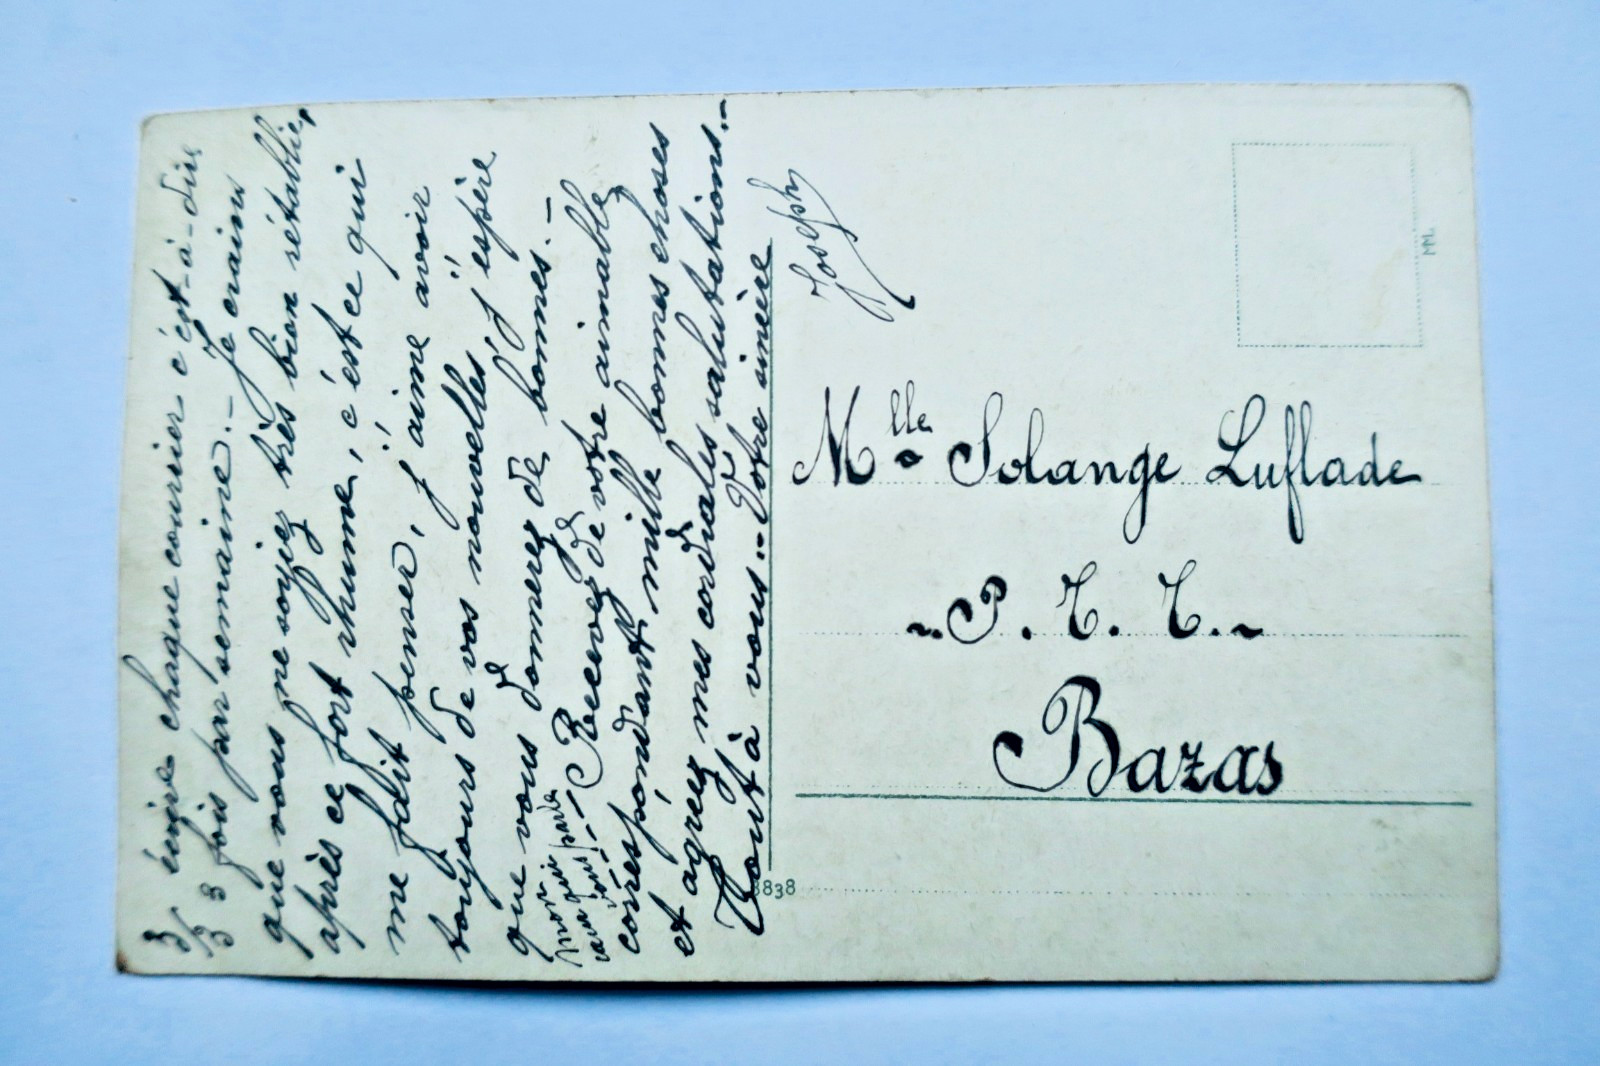 3/ énire chaque courrier c'est-à-dire
3 fois par semaine.- Je crains
que vous ne soyiez très bien rétablie,
après ce fort rhume, c'est ce qui
me fait penser, j'aime avoir
toujours de vos nouvelles j'espère
que vous donnerez de bonnes.-
Recevez de votre aimable
correspondant mille bonnes choses
et agréez mes cordiales salutations.-
Tout à vous.- Votre sincère
Joseph
Mlle Solange Luflade
P. T. T.
Bazas
3838
MM.